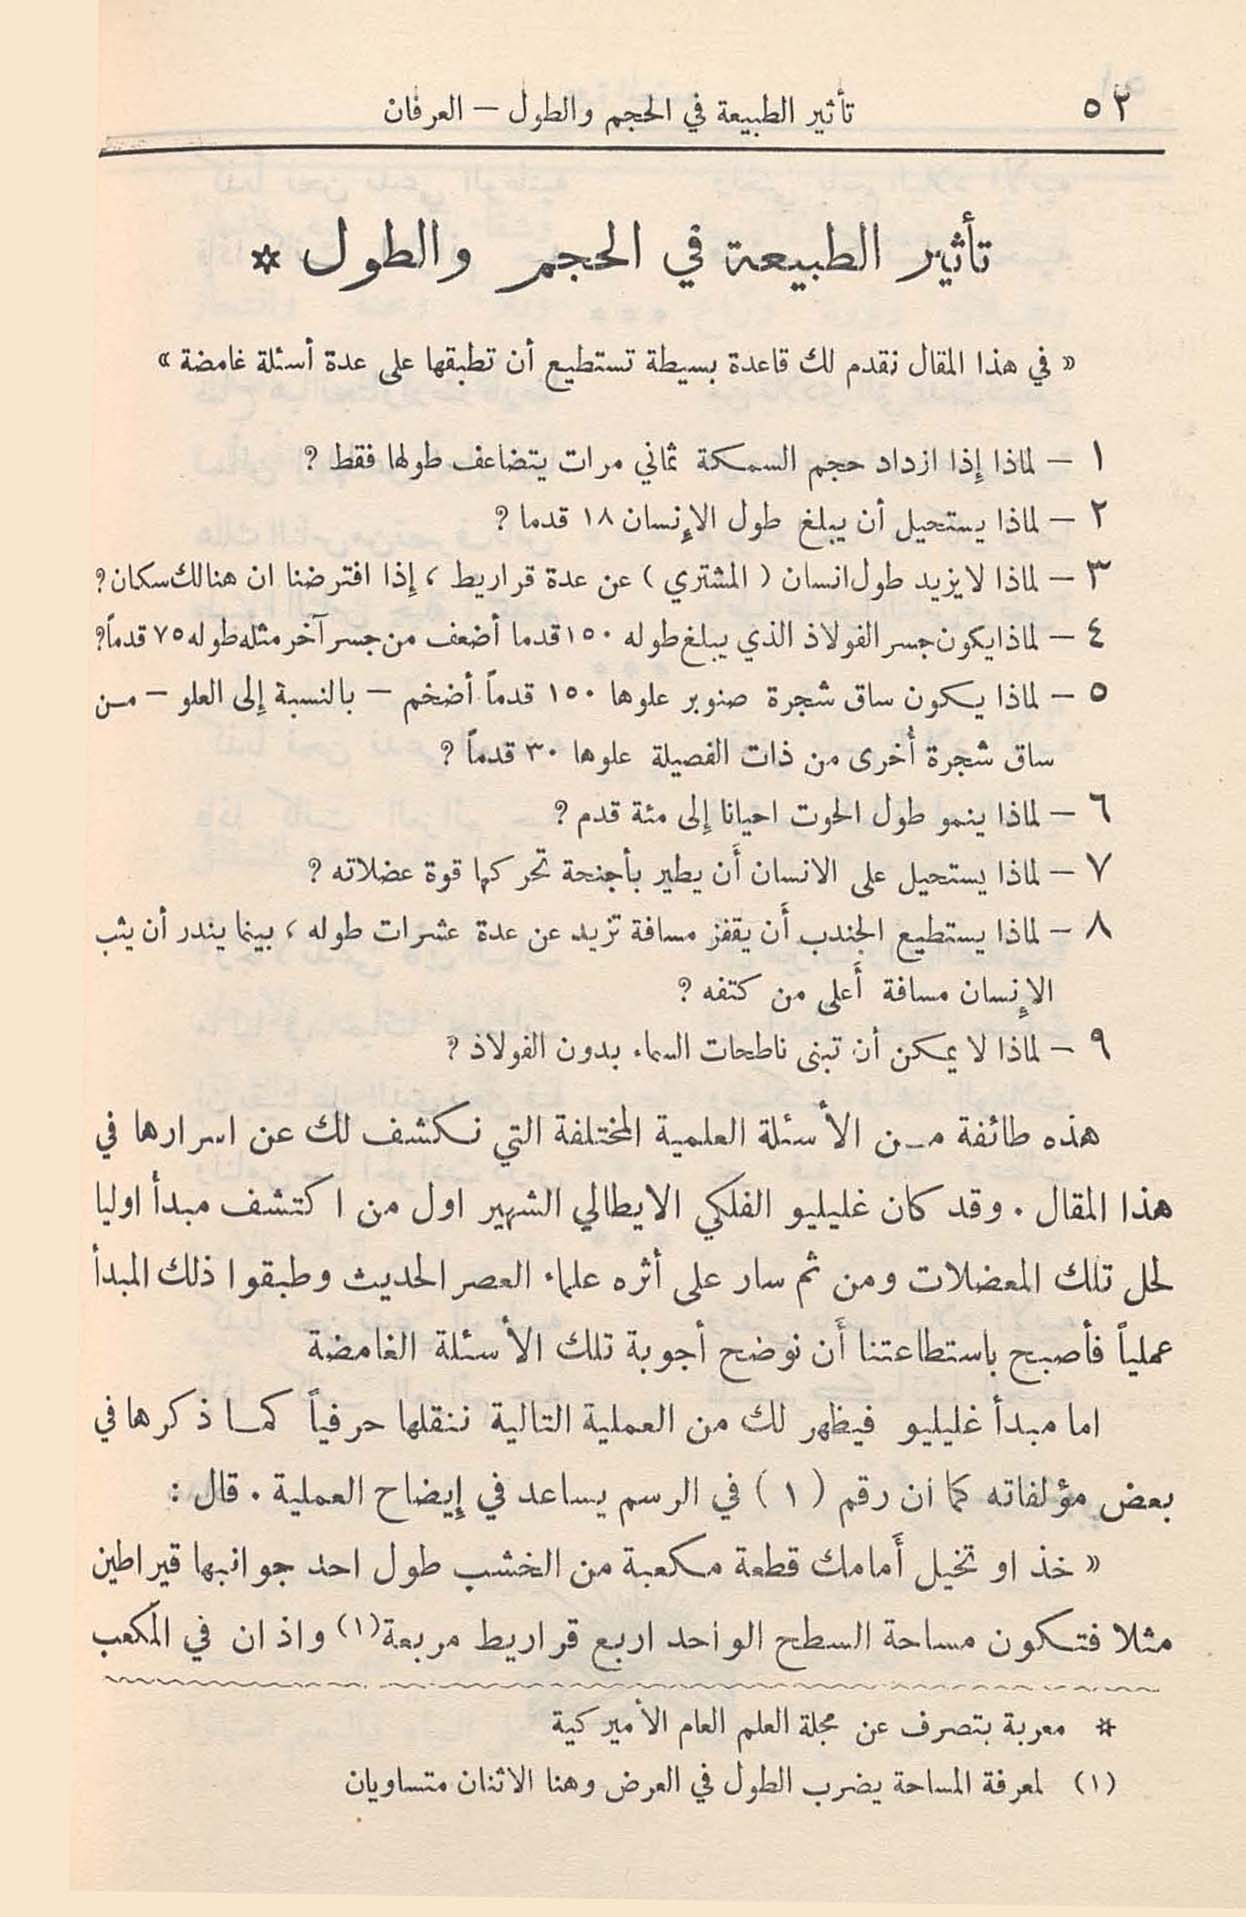 ٥٢
تأثير الطبيعة في الحجم والطول — العرفان
تأثير الطبيعة في الحجم والطول *
« في هذا المقال نقدم لك قاعدة بسيطة تستطيع أن تطبقها على عدة أسئلة غامضة »
١ — لماذا إذا ازداد حجم السمكة ثماني مرات يتضاعف طولها فقط ؟
٢ — لماذا يستحيل أن يبلغ طول الإنسان ١٨ قدما ؟
٣ — لماذا لا يزيد طول انسان ( المشتري ) عن عدة قراريط ، إذا افترضنا ان هنالك سكان ؟
٤ — لماذا يكون جسر الفولاذ الذي يبلغ طوله ١٥٠ قدما أضعف من جسر آخر مثله طوله ٧٥ قدماً ؟
٥ — لماذا يكون ساق شجرة صنوبر علوها ١٥٠ قدماً أضخم — بالنسبة إلى العلو — من
ساق شجرة أُخرى من ذات الفصيلة علوها ٣٠ قدماً ؟
٦ — لماذا ينمو طول الحوت احيانا إلى مئة قدم ؟
٧ — لماذا يستحيل على الانسان أَن يطير بأجنحة تحركها قوة عضلاته ؟
٨ — لماذا يستطيع الجندب أَن يقفز مسافة تزيد عن عدة عشرات طوله ، بينما يندر أن يثب
الإنسان مسافة أَعلى من كتفه ؟
٩ — لماذا لا يمكن أن تبنى ناطحات السماء بدون الفولاذ ؟
هذه طائفة من الأسئلة العلمية المختلفة التي نكشف لك عن اسرارها في
هذا المقال . وقد كان غليليو الفلكي الايطالي الشهير اول من اكتشف مبدأ اوليا
لحل تلك المعضلات ومن ثم سار على أثره علماء العصر الحديث وطبقوا ذلك المبدأ
عملياً فأصبح باستطاعتنا أَن نوضح أجوبة تلك الأسئلة الغامضة
اما مبدأ غليليو فيظهر لك من العملية التالية ننقلها حرفياً كما ذكرها في
بعض مؤلفاته كما ان رقم ( ١ ) في الرسم يساعد في إيضاح العملية . قال :
« خذ او تخيل أَمامك قطعة مكعبة من الخشب طول احد جوانبها قيراطين
مثلا فتكون مساحة السطح الواحد اربع قراريط مربعة (١) واذ ان في المكعب
* معربة بتصرف عن مجلة العلم العام الأميركية
(١) لمعرفة المساحة يضرب الطول في العرض وهنا الاثنان متساويان